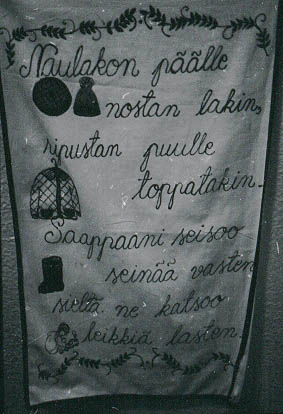 Naulakon päälle
nostan lakin,
ripustan puulle
toppatakin.
Saappaani seisoo
seinää vasten
sieltä ne katsoo
leikkiä lasten.